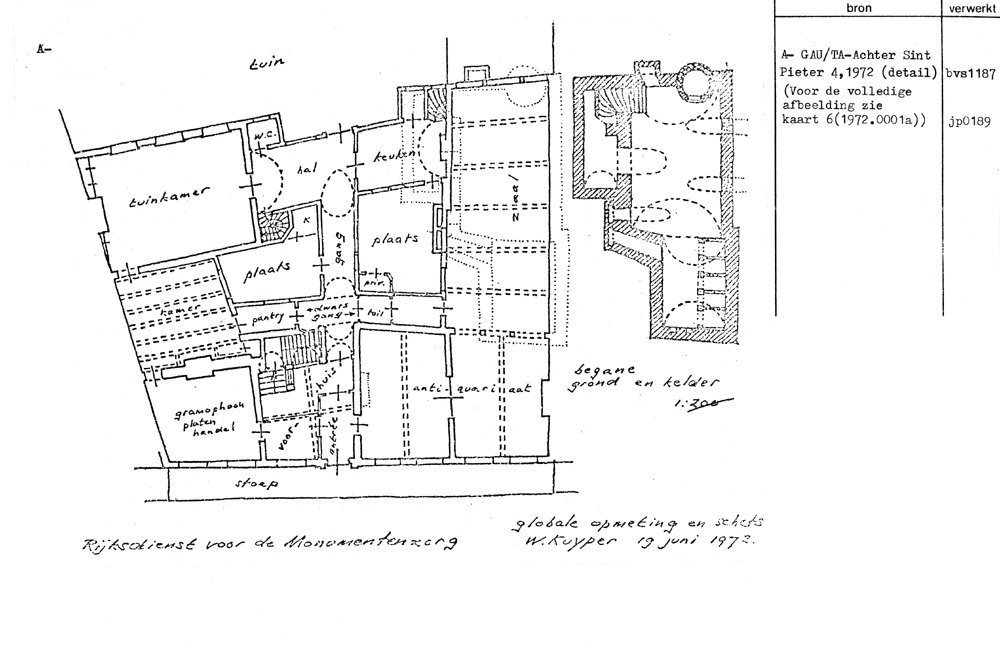 A-
tuin
w.c.
hal
keuken
tuinkamer
zaal
K
gang
plaats
plaats
priv.
kamer
pantry
dwars
gang
toil
huis
anti-quariaat
gramophoon
platen
handel
voor-
entrée
stoep
begane
grond en kelder
1:200
Rijksdienst voor de Monumentenzorg
globale opmeting en schets
W. Kuyper 19 juni 1972.
bron
verwerkt
A- GAU/TA-Achter Sint
Pieter 4,1972 (detail)
bvs1187
(Voor de volledige
afbeelding zie
kaart 6(1972.0001a))
jp0189